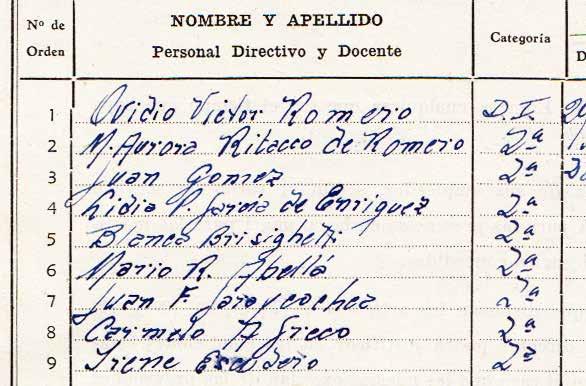 Nº de Orden NOMBRE Y APELLIDO Personal Directivo y Docente Categoría D
1 Ovidio Victor Romero D.I. 29
2 M. Aurora Ritacco de Romero 2ª
3 Juan Gomez 2ª
4 Lidia P. García de Enriquez 2ª
5 Blanca Brisighelli 2ª
6 Mario R. Abellá 2ª
7 Juan F. 2ª
8 Carmelo A Greco 2ª
9 Irene Escudero 2ª